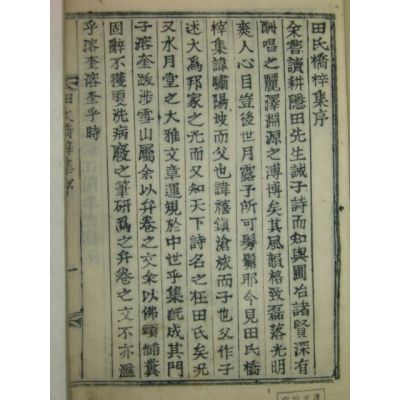 田氏橋梓集序
余嘗讀耕隱田先生誡子詩而知與圃冶諸賢深有
酬唱之麗澤淵源之溥博矣其風韻格致磊落光明
爽人心目豈後世月露子所可髣髴耶今見田氏橋
梓集諱嘯陽坡而父也諱禧鎭滄旅而子也父作子
述大爲邦家之光而又知天下詩名之在田氏矣況
又水月堂之大雅文章運規於中世乎集旣成其門
子溶奎跋涉雪山屬余以弁卷之文余以佛頭鋪糞
固辭不獲更洗病廢之筆硏爲之弁卷之文不亦濫
乎溶奎溶奎乎時
田氏橋梓集序
一